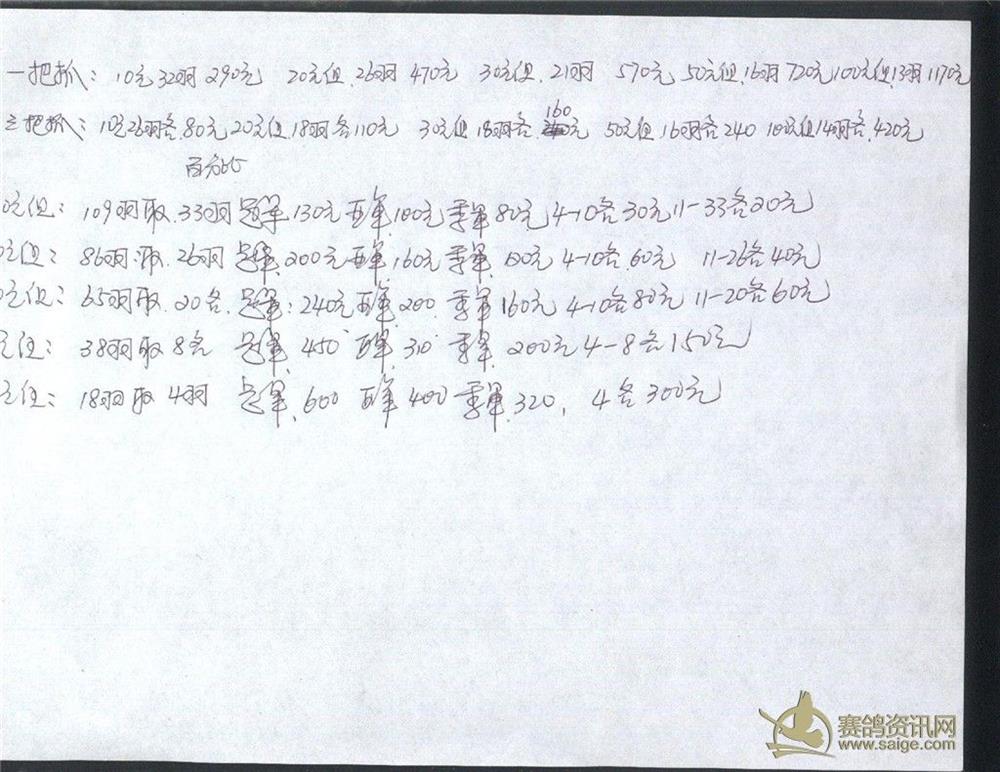 一把抓：10元32羽290元 20元组.26羽470元 30元组.21羽 570元 50元组.16羽720元100元组.13羽1170元
三把抓：10元26羽各80元20元组18羽各110元 30元组18羽各160元 50元组16羽各240 100元组14羽各.420元
百分比
0元组：109羽取.33羽 冠军130元 亚军.100元 季军80元4-10各30元11-33各20元
元组：86羽取.26羽 冠军.200元 亚军.160元 季军.100元 4-10各.60元 11-26各40元
0元组：65羽取.20名.冠军：240元 亚军.200 季军160元 4-10各80元 11-20各60元
元组：38羽取8名 冠军.450 亚军.310 季军.200元4-8各150元
元组：18羽取4羽 冠军.600 亚军400 季军.320，4名300元
赛鸽资讯网
www.saige.com